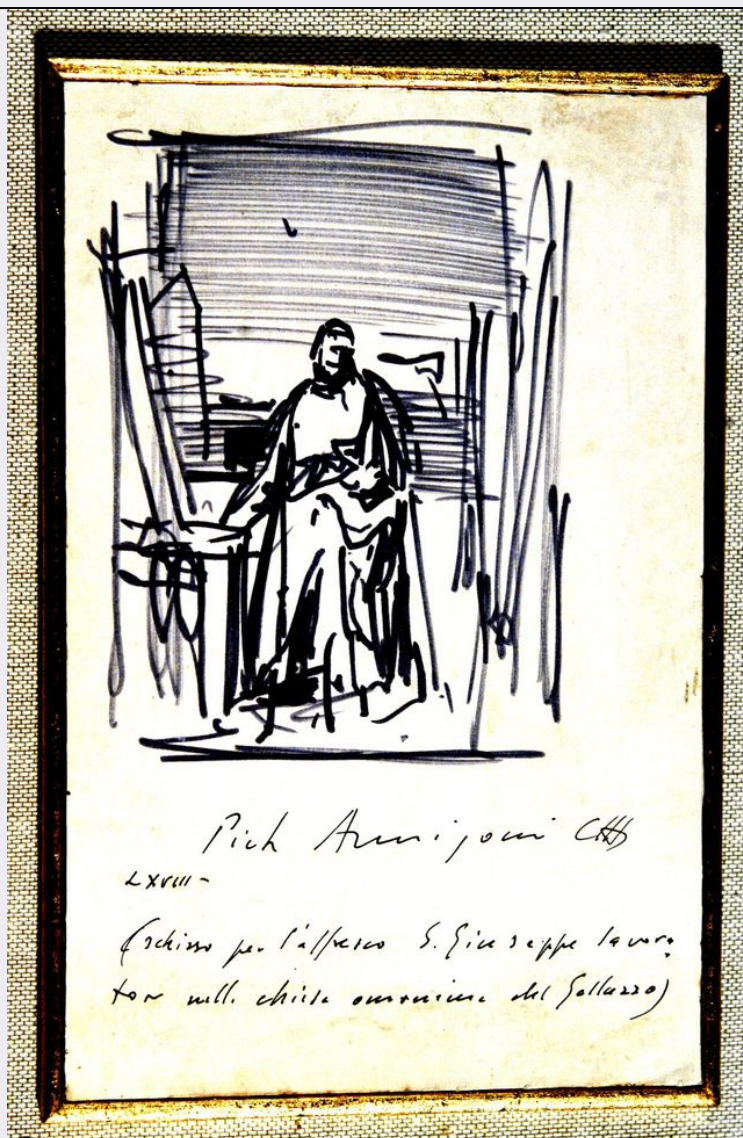 Pietro Annigoni
LXVIII-
(schizzo per l'affresco S. Giuseppe lavora
tore nella chiesa omonima del Galluzzo)